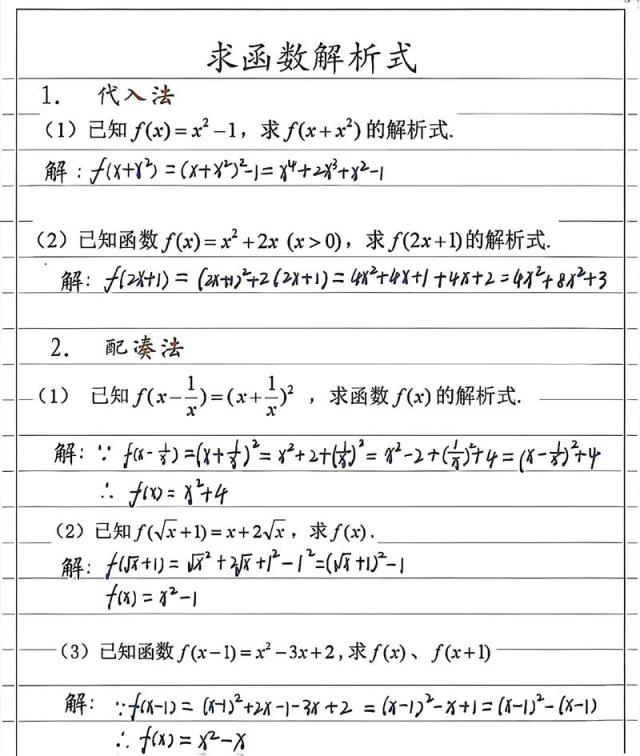 求函数解析式
1. 代入法
(1) 已知 f(x)=x²-1，求 f(x+x²) 的解析式.
解：f(x+x²)=(x+x²)²-1=x⁴+2x³+x²-1
(2) 已知函数 f(x)=x²+2x (x>0)，求 f(2x+1) 的解析式.
解：f(2x+1)=(2x+1)²+2(2x+1)=4x²+4x+1+4x+2=4x²+8x²+3
2. 配凑法
(1) 已知 f(x-1/x)=(x+1/x)²，求函数 f(x) 的解析式.
解：∵ f(x-1/x)=(x+1/x)²=x²+2+(1/x)²=x²-2+(1/x)²+4=(x-1/x)²+4
∴ f(x)=x²+4
(2) 已知 f(√x+1)=x+2√x，求 f(x).
解：f(√x+1)=√x²+2√x+1²-1²=(√x+1)²-1
f(x)=x²-1
(3) 已知函数 f(x-1)=x²-3x+2,求 f(x)、f(x+1)
解：∵f(x-1)=(x-1)²+2x-1-3x+2=(x-1)²-x+1=(x-1)²-(x-1)
∴ f(x)=x²-x